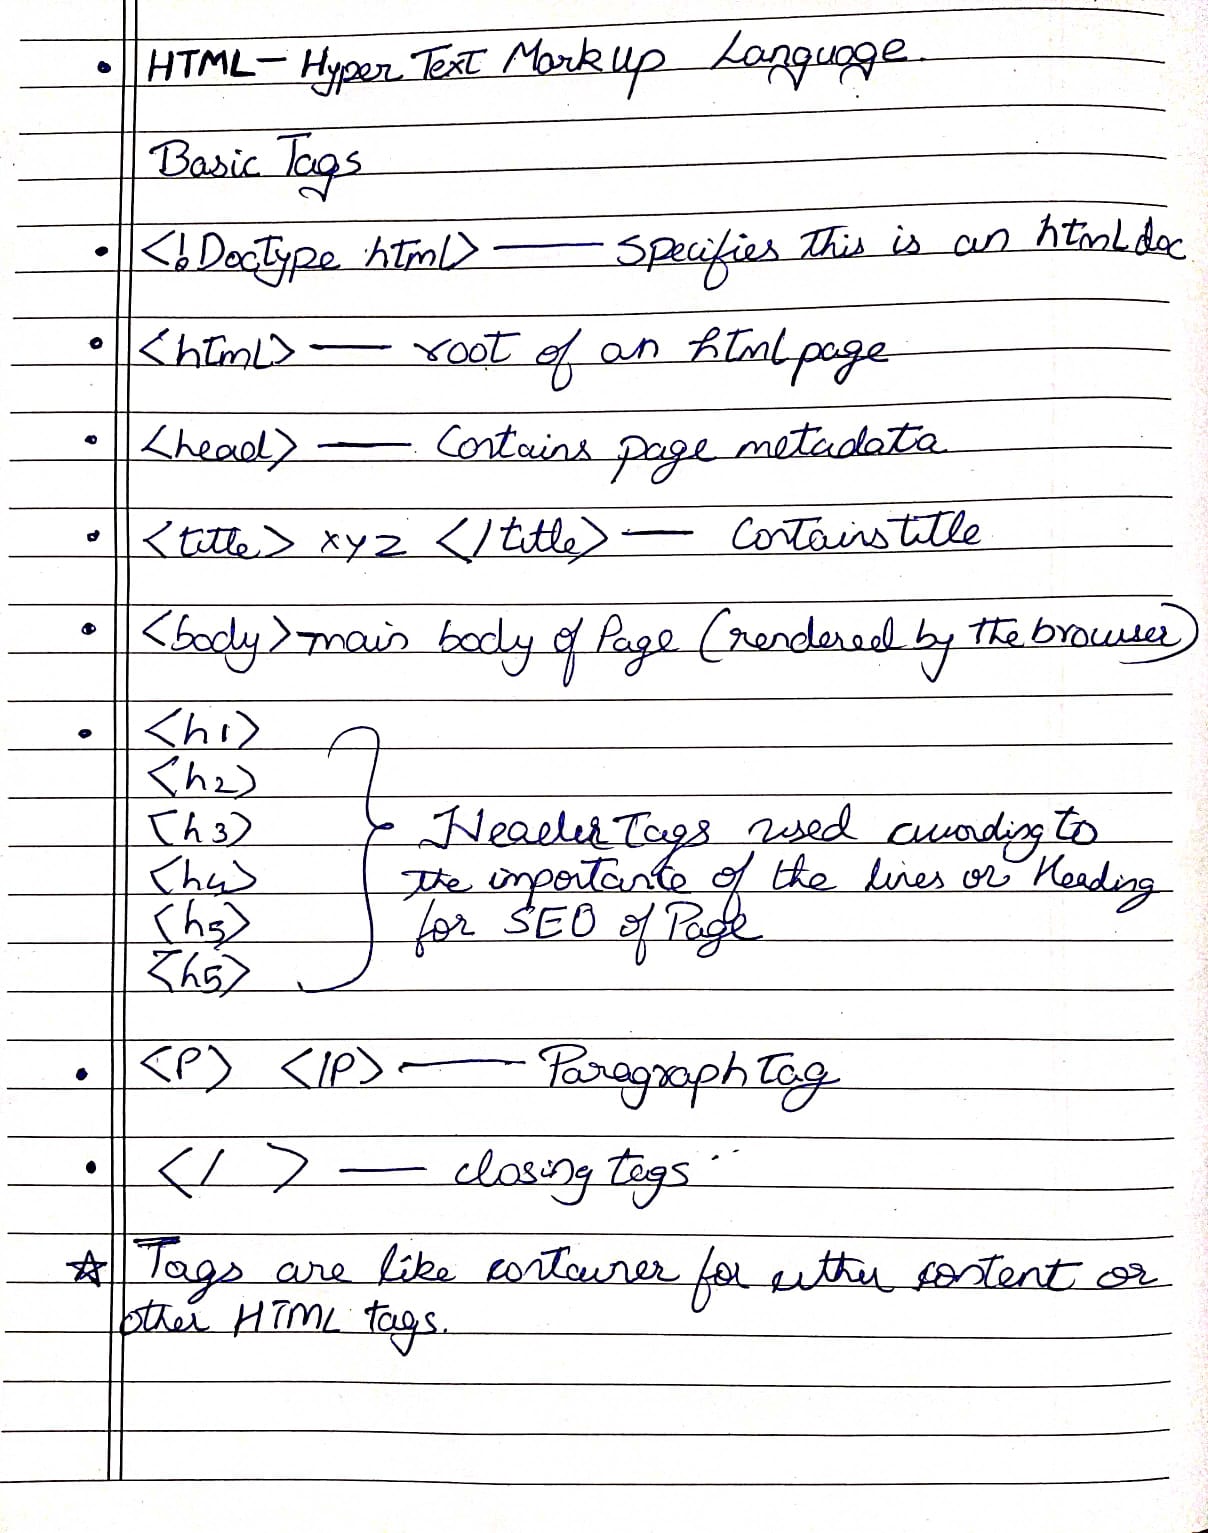 • HTML - Hyper Text Markup Language.
Basic Tags
• <!Doctype html> — Specifies this is an html doc
• <html> — root of an html page
• <head> — Contains page metadata
• <title> xyz </title> — Contains title
• <body> main body of Page (rendered by the browser)
• <h1>
<h2>
<h3>
<h4>
<h5>
<h5>
Header Tags used according to
the importante of the lines or Heading
for SEO of Page
• <P> </P> — Paragraph Tag
• </ > — closing tags
☆ Tags are like container for either content or
other HTML tags.